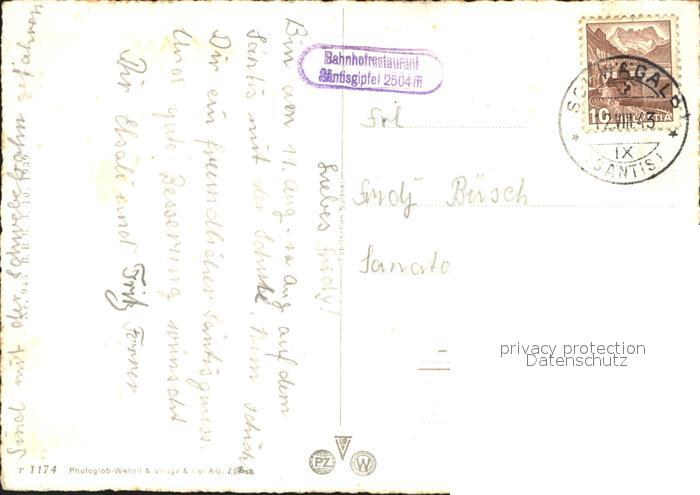 Bahnhofrestaurant
Säntisgipfel 2504 m
SCHWÄGALP
12.VIII.43
IX
(SÄNTIS)
10 HELVETIA
Frl
Büsch
Sanato
Liebes
Bin am 11. Aug - 12 Aug auf dem
Säntis mit der Schule. Nun schickt
Dir ein freundlicher Säntisgruss.
Und gute Besserung wünscht
Dir Elsäli und Fritz Forrer.
Sind mit der Schwebebahn gefahren
Fabrication Suisse
r 1174 Photoglob-Wehrli & Vouga & Co. AG. Zürich
PZ
W
privacy protection
Datenschutz